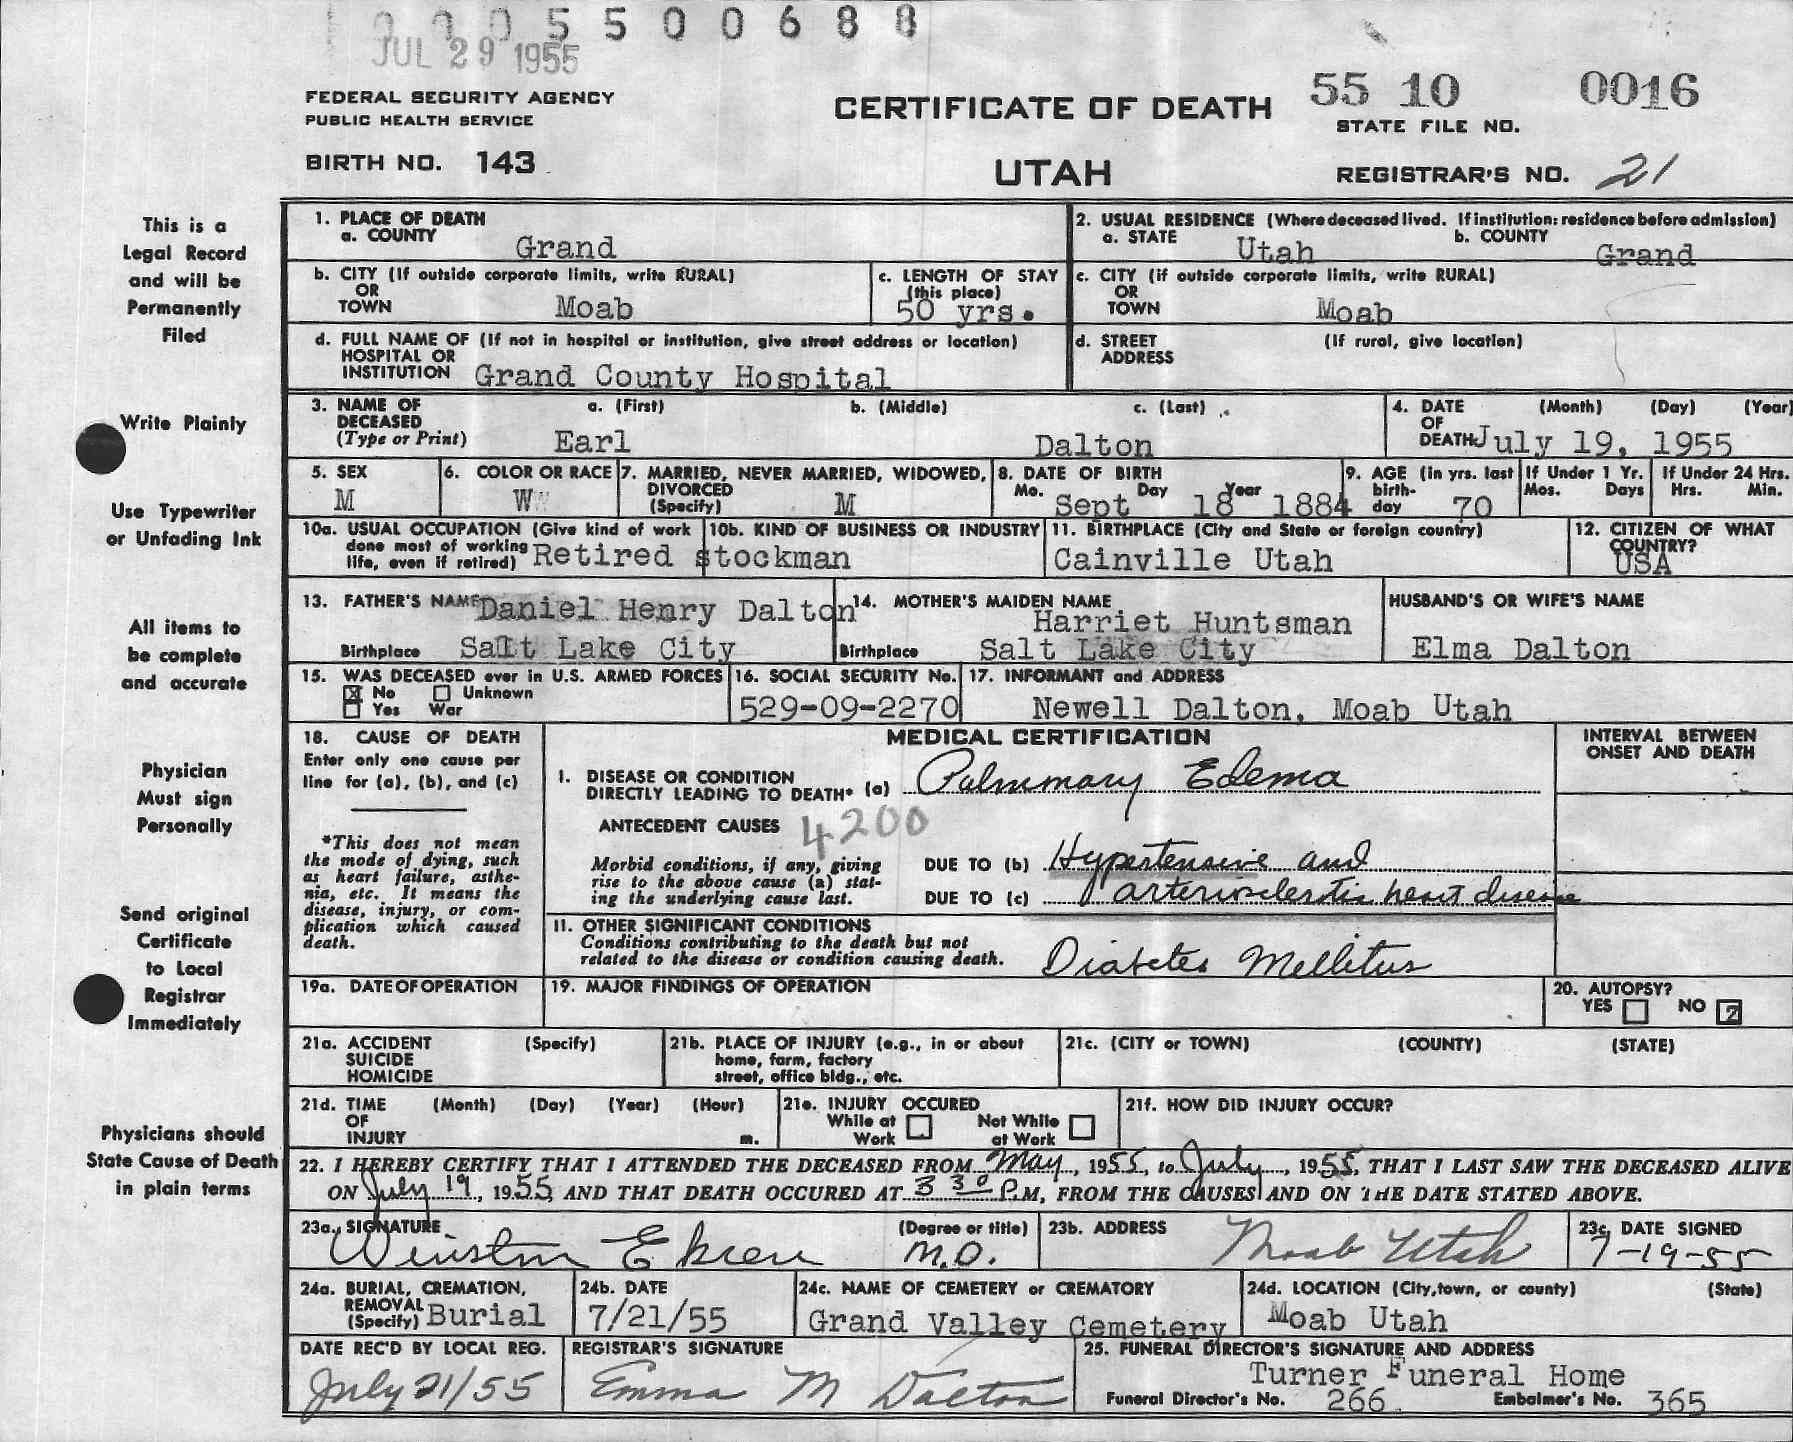 0005500688
JUL 29 1955
FEDERAL SECURITY AGENCY
PUBLIC HEALTH SERVICE
BIRTH NO. 143
CERTIFICATE OF DEATH
UTAH
55 10 0016
STATE FILE NO.
REGISTRAR'S NO. 21
This is a
Legal Record
and will be
Permanently
Filed
Write Plainly
Use Typewriter
or Unfading Ink
All items to
be complete
and accurate
Physician
Must sign
Personally
Send original
Certificate
to Local
Registrar
Immediately
Physicians should
State Cause of Death
in plain terms
1. PLACE OF DEATH
a. COUNTY Grand
2. USUAL RESIDENCE (Where deceased lived. If institution: residence before admission)
a. STATE Utah b. COUNTY Grand
b. CITY (If outside corporate limits, write RURAL)
OR
TOWN Moab
c. LENGTH OF STAY
(this place)
50 yrs.
c. CITY (if outside corporate limits, write RURAL)
OR
TOWN Moab
d. FULL NAME OF (If not in hospital or institution, give street address or location)
HOSPITAL OR
INSTITUTION Grand County Hospital
d. STREET (If rural, give location)
ADDRESS
3. NAME OF a. (First) b. (Middle) c. (Last)
DECEASED
(Type or Print) Earl Dalton
4. DATE (Month) (Day) (Year)
OF
DEATH July 19, 1955
5. SEX
M
6. COLOR OR RACE
W
7. MARRIED, NEVER MARRIED, WIDOWED,
DIVORCED
(Specify) M
8. DATE OF BIRTH
Mo. Day Year
Sept 18 1884
9. AGE (in yrs. last
birth-
day 70
If Under 1 Yr.
Mos. Days
If Under 24 Hrs.
Hrs. Min.
10a. USUAL OCCUPATION (Give kind of work
done most of working
life, even if retired) Retired stockman
10b. KIND OF BUSINESS OR INDUSTRY
11. BIRTHPLACE (City and State or foreign country)
Cainville Utah
12. CITIZEN OF WHAT
COUNTRY?
USA
13. FATHER'S NAME Daniel Henry Dalton
Birthplace Salt Lake City
14. MOTHER'S MAIDEN NAME
Harriet Huntsman
Birthplace Salt Lake City
HUSBAND'S OR WIFE'S NAME
Elma Dalton
15. WAS DECEASED ever in U.S. ARMED FORCES
No Unknown
Yes War
16. SOCIAL SECURITY No.
529-09-2270
17. INFORMANT and ADDRESS
Newell Dalton, Moab Utah
18. CAUSE OF DEATH
Enter only one cause per
line for (a), (b), and (c)
*This does not mean
the mode of dying, such
as heart failure, asthe-
nia, etc. It means the
disease, injury, or com-
plication which caused
death.
MEDICAL CERTIFICATION
INTERVAL BETWEEN
ONSET AND DEATH
I. DISEASE OR CONDITION
DIRECTLY LEADING TO DEATH* (a) Pulmonary Edema
ANTECEDENT CAUSES 4200
Morbid conditions, if any, giving
rise to the above cause (a) stat-
ing the underlying cause last.
DUE TO (b) Hypertensive and
DUE TO (c) arteriosclerotic heart disease
II. OTHER SIGNIFICANT CONDITIONS
Conditions contributing to the death but not
related to the disease or condition causing death.
Diabetes Mellitus
19a. DATE OF OPERATION
19. MAJOR FINDINGS OF OPERATION
20. AUTOPSY?
YES NO 2
21a. ACCIDENT (Specify)
SUICIDE
HOMICIDE
21b. PLACE OF INJURY (e.g., in or about
home, farm, factory
street, office bldg., etc.
21c. (CITY or TOWN) (COUNTY) (STATE)
21d. TIME (Month) (Day) (Year) (Hour)
OF
INJURY m.
21e. INJURY OCCURED
While at Not While
Work at Work
21f. HOW DID INJURY OCCUR?
22. I HEREBY CERTIFY THAT I ATTENDED THE DECEASED FROM May, 1955, to July, 1955, THAT I LAST SAW THE DECEASED ALIVE
ON July 19, 1955, AND THAT DEATH OCCURED AT 3 30 P.M, FROM THE CAUSES AND ON THE DATE STATED ABOVE.
23a. SIGNATURE (Degree or title)
Winston Ekren M.D.
23b. ADDRESS
Moab Utah
23c. DATE SIGNED
7-19-55
24a. BURIAL, CREMATION,
REMOVAL
(Specify) Burial
24b. DATE
7/21/55
24c. NAME OF CEMETERY or CREMATORY
Grand Valley Cemetery
24d. LOCATION (City, town, or county) (State)
Moab Utah
DATE REC'D BY LOCAL REG.
July 21/55
REGISTRAR'S SIGNATURE
Emma M Dalton
25. FUNERAL DIRECTOR'S SIGNATURE AND ADDRESS
Turner Funeral Home
Funeral Director's No. 266 Embalmer's No. 365